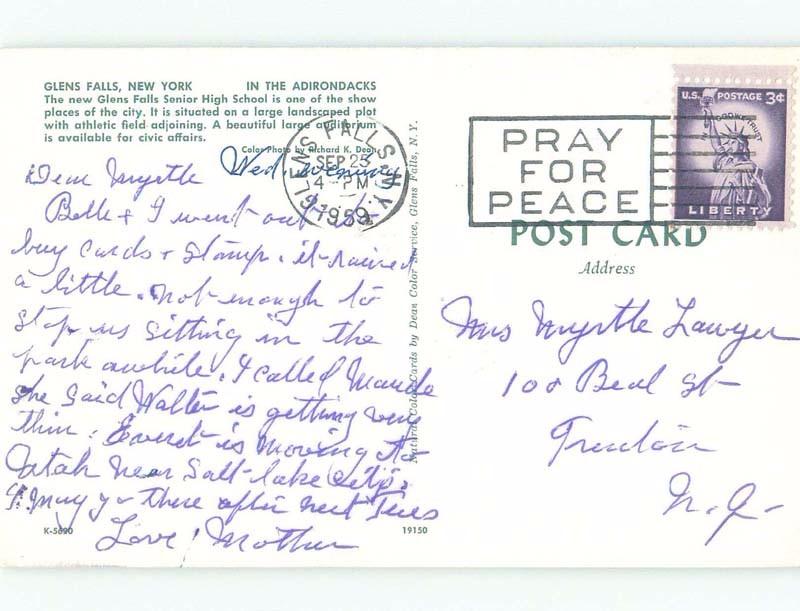 GLENS FALLS, NEW YORK IN THE ADIRONDACKS
The new Glens Falls Senior High School is one of the show
places of the city. It is situated on a large landscaped plot
with athletic field adjoining. A beautiful large auditorium
is available for civic affairs.
Color Photo by Richard K. Dean
Wed. evening
Dear Myrtle
Belle & I went out to
buy cards & stamps. it rained
a little. not enough to
stop us sitting in the
park awhile. I called Maude
she said Walter is getting very
thin. Everet is moving to
Utah near Salt lake city.
I may go there after next Tues
Love Mother
K-5690
19150
Natural Color Cards by Dean Color Service, Glens Falls, N. Y.
GLENS FALLS, N.Y.
SEP 23
4 - PM
1959
PRAY
FOR
PEACE
U.S. POSTAGE 3¢
IN GOD WE TRUST
LIBERTY
POST CARD
Address
Mrs Myrtle Lawyer
108 Beal St
Trenton
N. J.